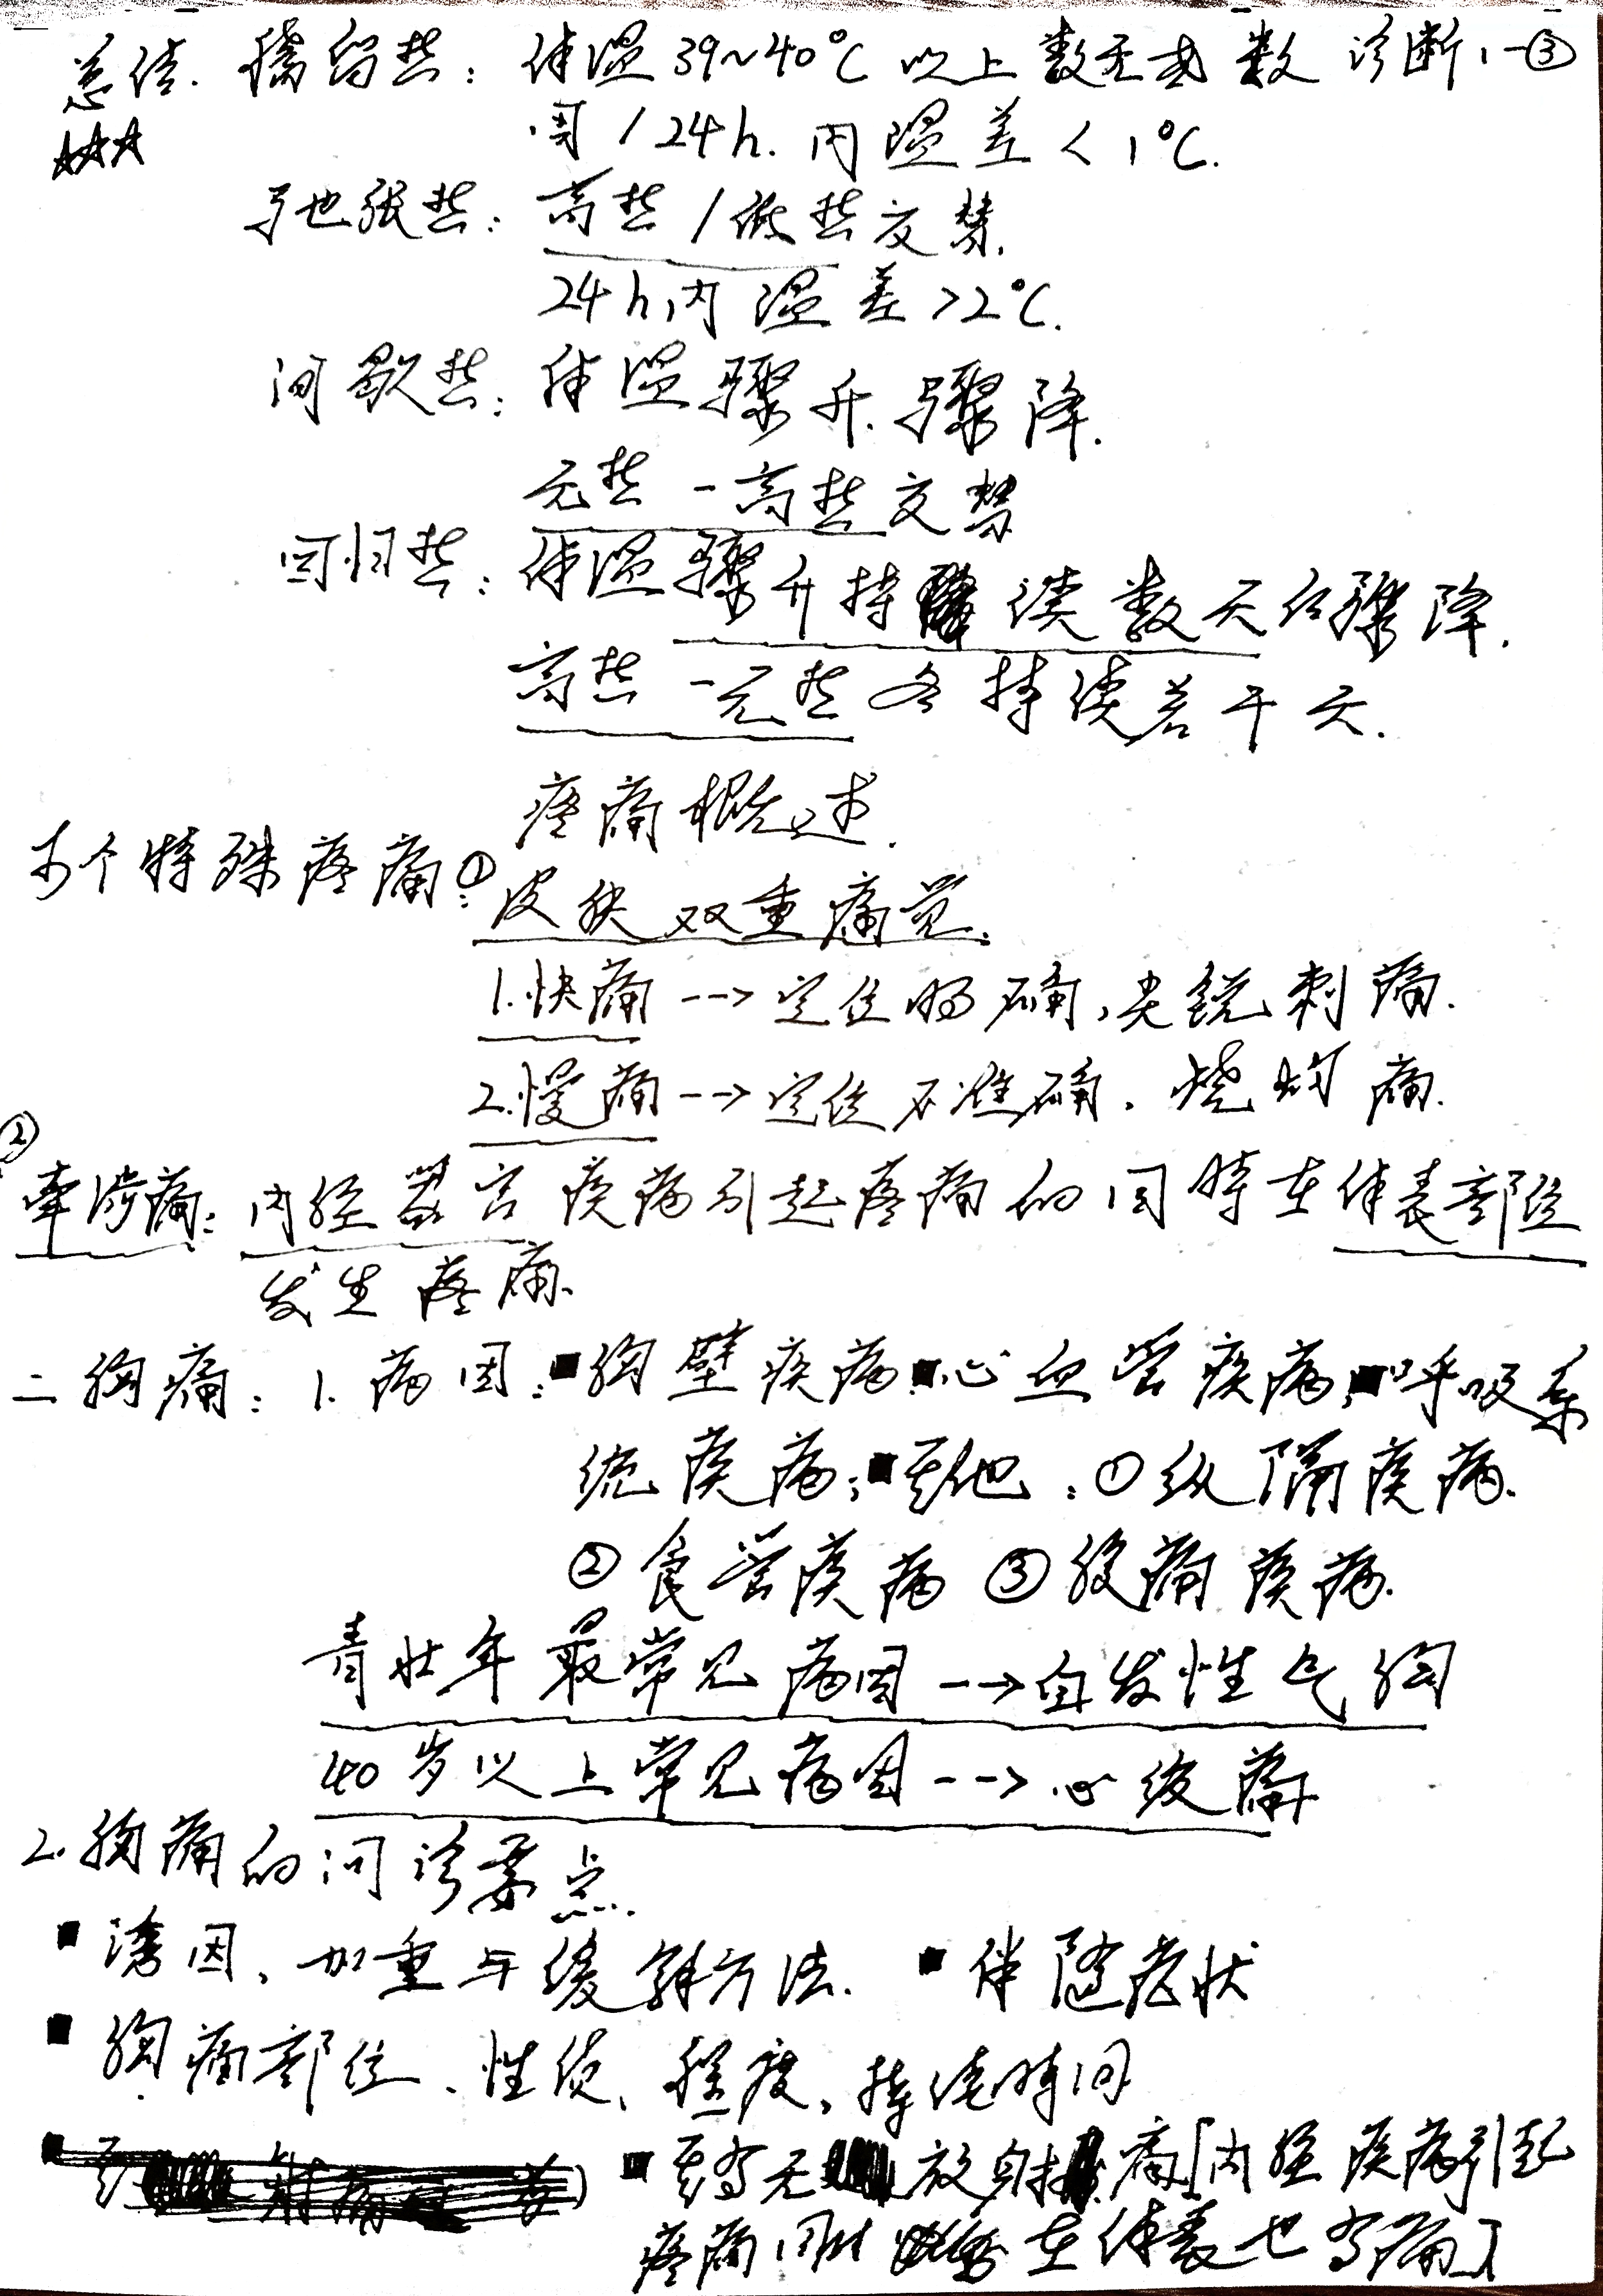 总结. 稽留热: 体温39~40℃以上数天或数 诊断1-③
☆☆☆
周/24h.内温差<1℃.
弛张热: 高热/低热交替.
24h内温差>2℃.
间歇热: 体温骤升.骤降.
无热-高热交替
回归热: 体温骤升持续数天后骤降.
高热-无热各持续若干天.
疼痛概述.
个特殊疼痛: ①
皮肤双重痛觉.
1.快痛-->定位明确,尖锐刺痛.
2.慢痛-->定位不准确.烧灼痛.
②
牵涉痛: 内脏器官疾病引起疼痛的同时在体表部位
发生疼痛.
二胸痛: 1.病因: ■胸壁疾病■心血管疾病;■呼吸系
统疾病;■其他:①纵隔疾病.
②食管疾病 ③腹痛疾病.
青壮年最常见病因-->自发性气胸
40岁以上常见病因-->心绞痛
2.胸痛的问诊要点.
■诱因、加重与缓解方法. ■伴随症状
■胸痛部位、性质、程度、持续时间
■有无放射痛[内脏疾病引起
疼痛同时在体表也有痛]